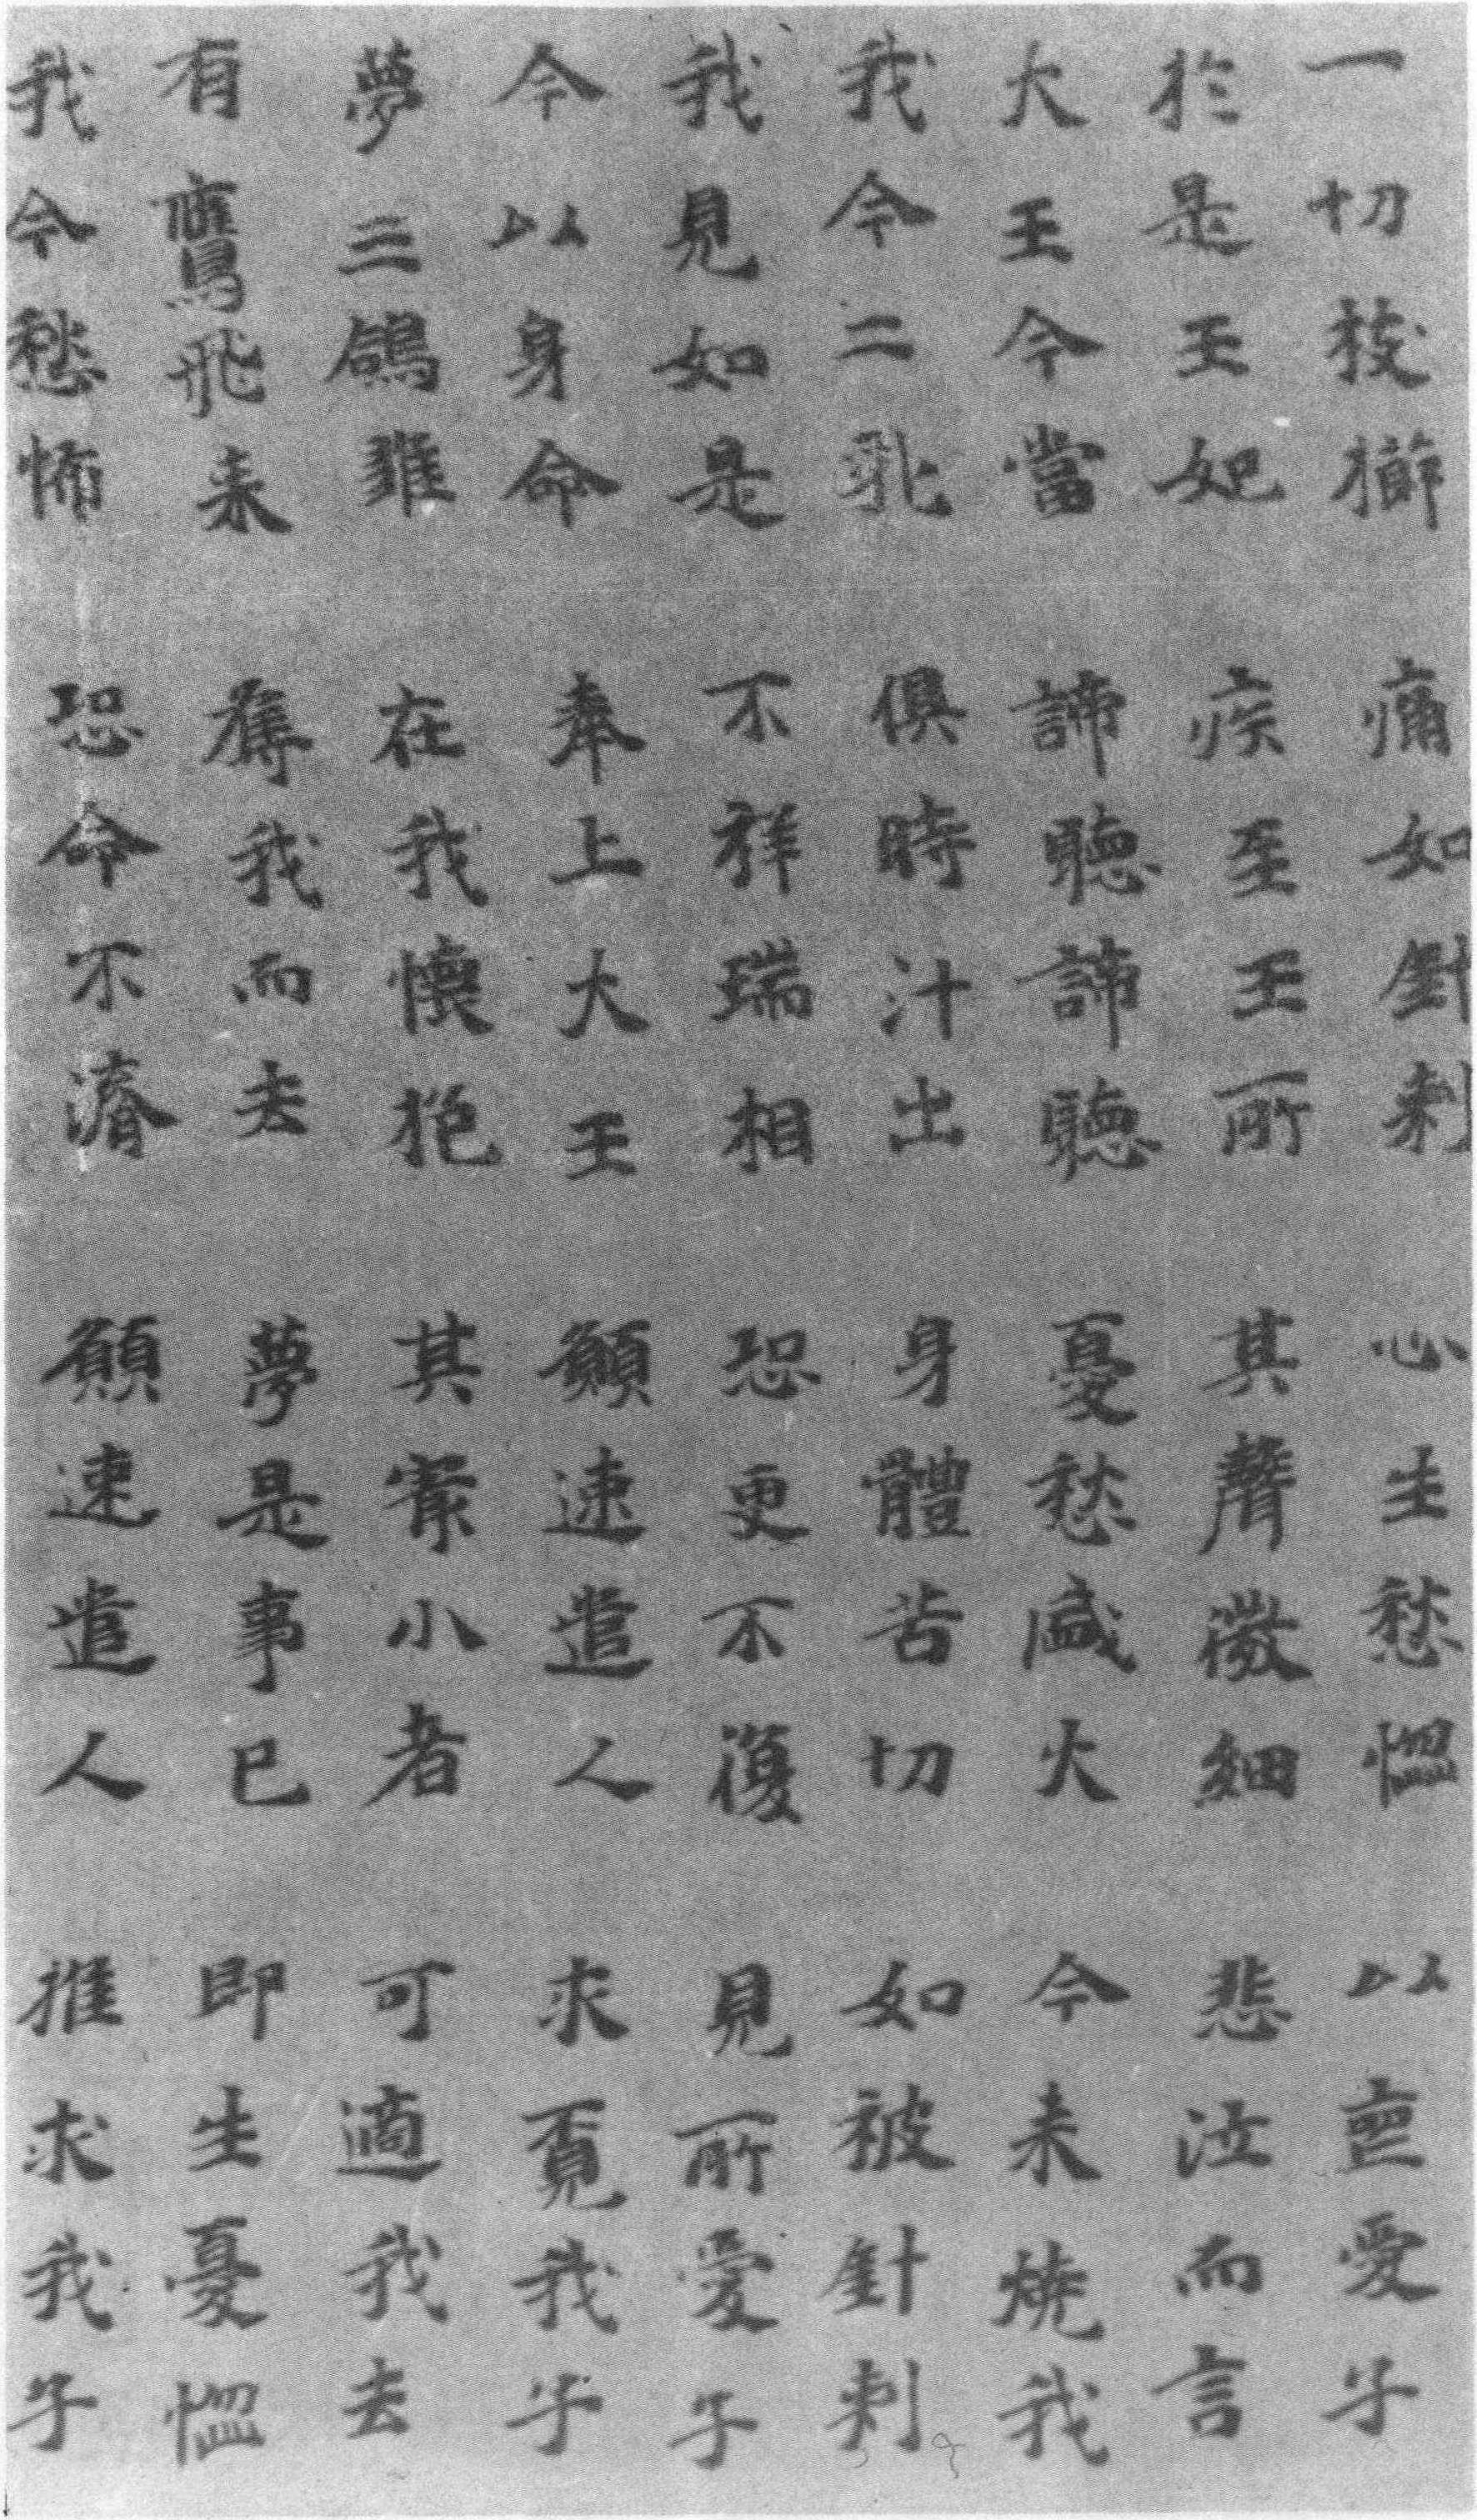 一切枝擳 痛如針刾 心生愁惱 以䘮愛子
於是王妃 疾至王所 其聲微細 悲泣而言
大王今當 諦聽諦聽 憂愁盛火 今来燒我
我今二乳 俱時汁出 身體苦切 如被針刾
我見如是 不祥瑞相 恐更不復 見所愛子
今以身命 奉上大王 願速遣人 求覓我子
夢三鴿雛 在我懷抱 其冣小者 可適我去
有鷹飛来 奪我而去 夢是事已 即生憂惱
我今愁怖 恐命不濟 願速遣人 推求我子